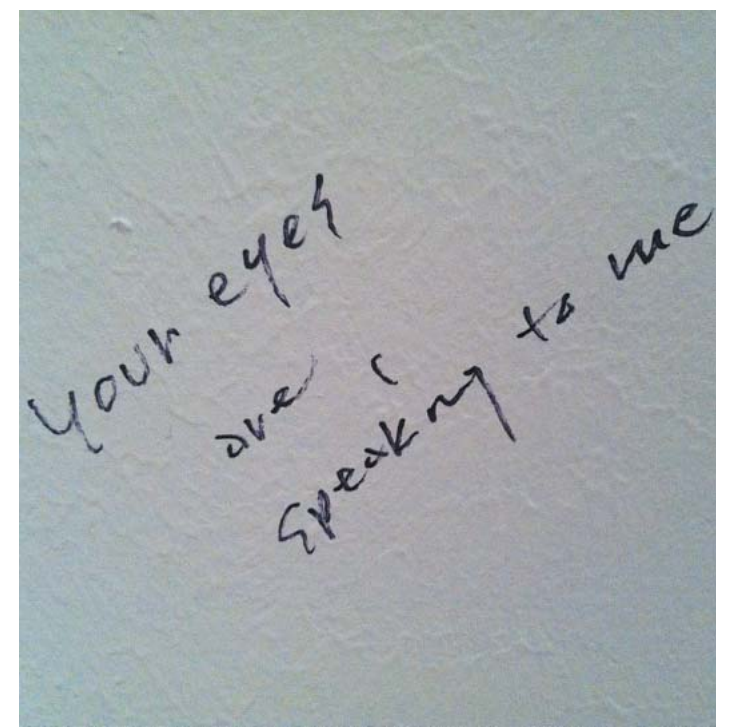 your eyes
are
speaking to me